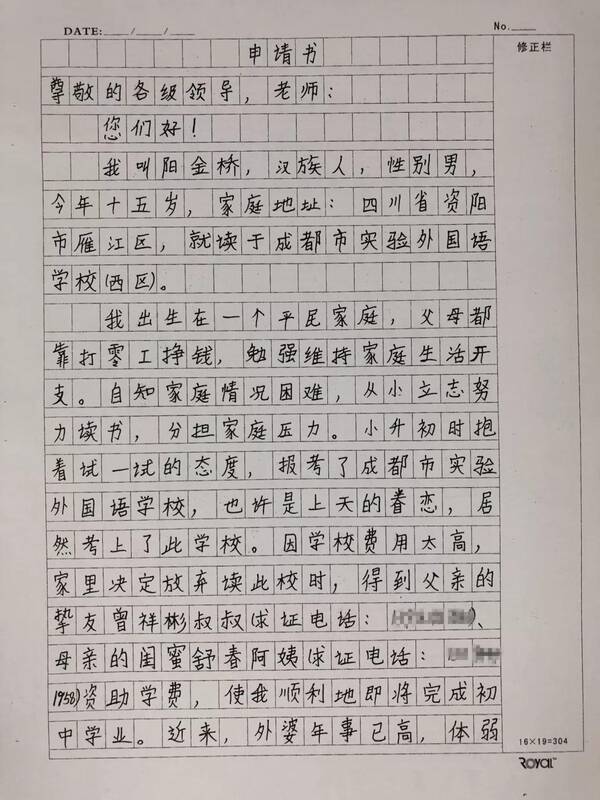 DATE: / / No.
修正栏
申请书
尊敬的各级领导，老师：
您们好！
我叫阳金桥，汉族人，性别男，
今年十五岁，家庭地址：四川省资阳
市雁江区，就读于成都市实验外国语
学校(西区)。
我出生在一个平民家庭，父母都
靠打零工挣钱，勉强维持家庭生活开
支。自知家庭情况困难，从小立志努
力读书，分担家庭压力。小升初时抱
着试一试的态度，报考了成都市实验
外国语学校，也许是上天的眷恋，居
然考上了此学校。因学校费用太高，
家里决定放弃读此校时，得到父亲的
挚友曾祥彬叔叔(求证电话：)、
母亲的闺蜜舒春阿姨(求证电话：
1958)资助学费，使我顺利地即将完成初
中学业。近来，外婆年事已高，体弱
16×19=304
ROYAL